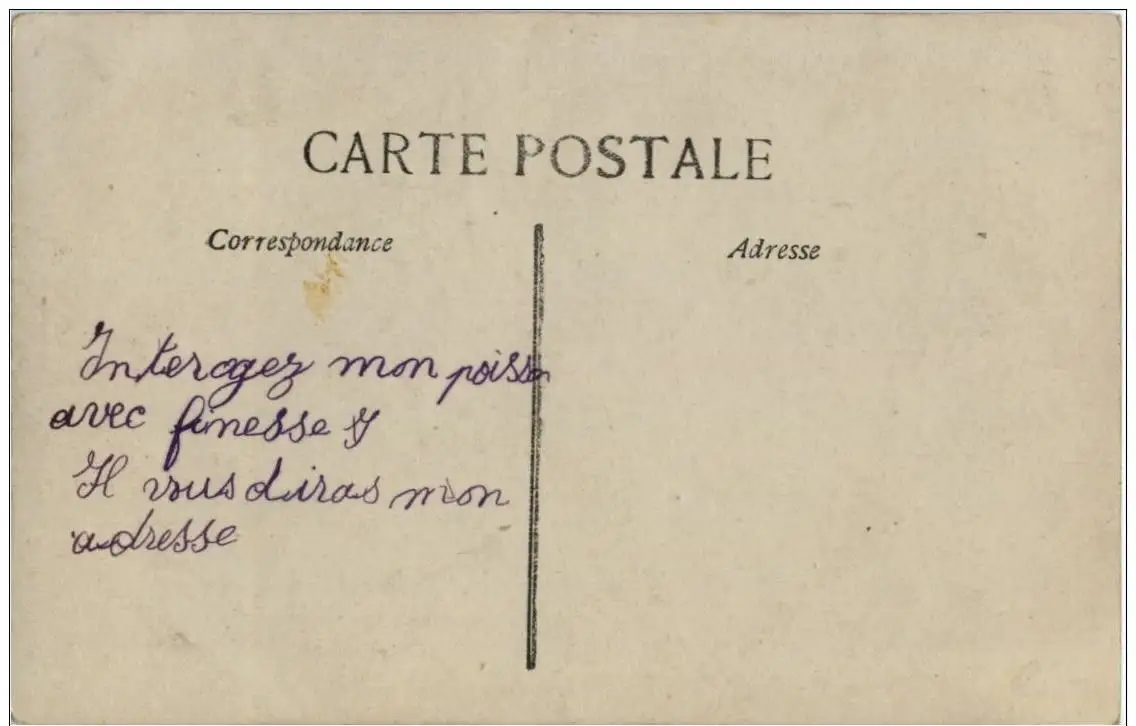 CARTE POSTALE
Correspondance
Adresse
Interogez mon poisson
avec finesse
Il vous diras mon
adresse